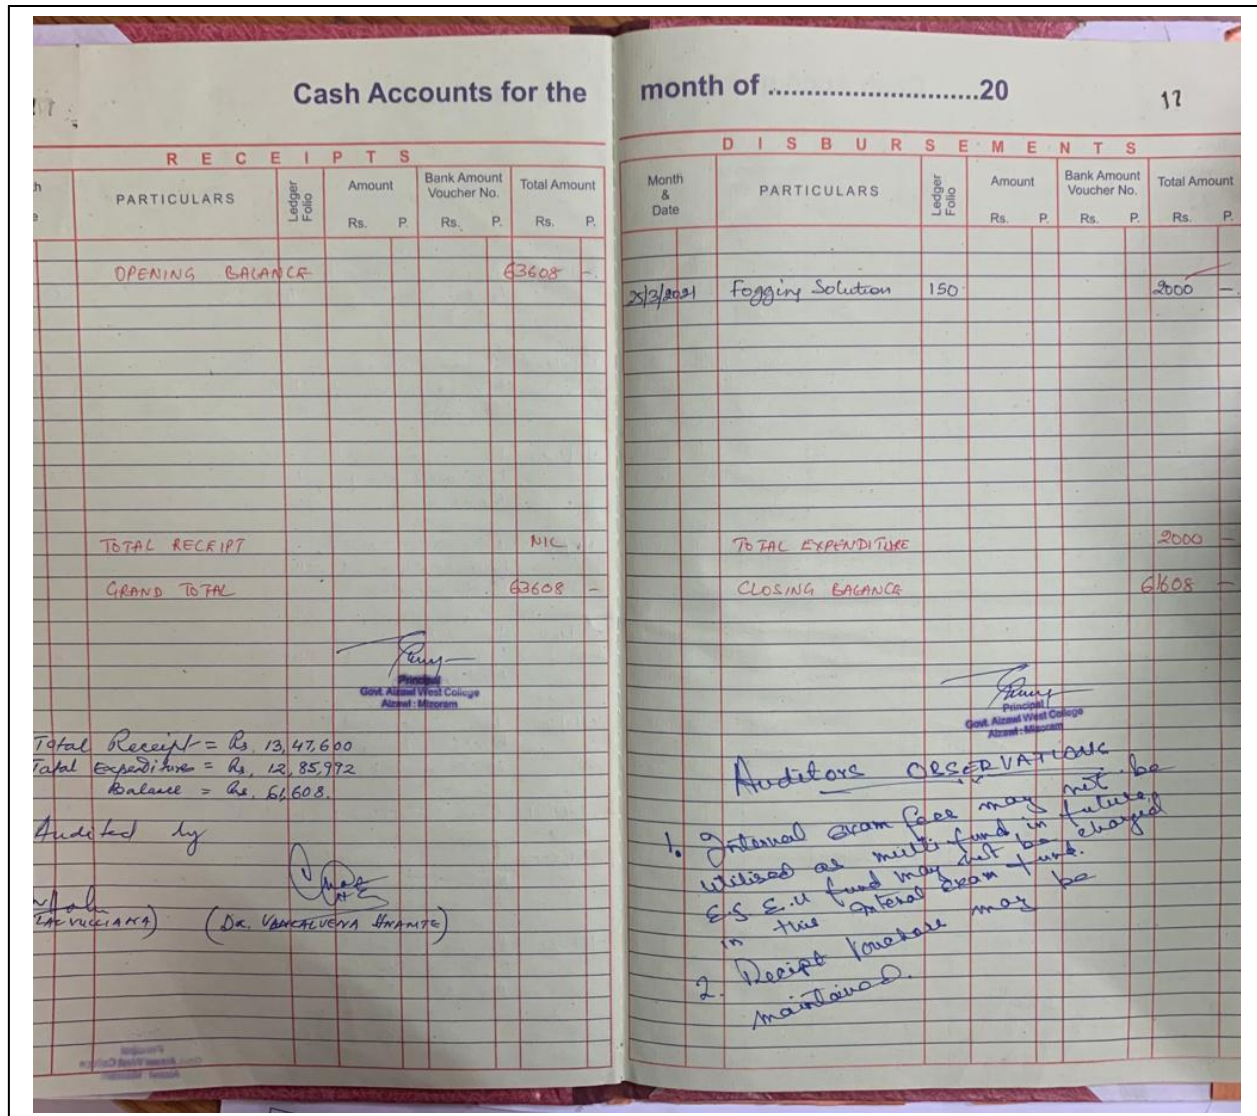 Cash Accounts for the month of ............................20
17
RECEIPTS
PARTICULARS
Ledger Folio
Amount
Rs. P.
Bank Amount
Voucher No.
Rs. P.
Total Amount
Rs. P.
OPENING BALANCE 63608 -
TOTAL RECEIPT NIL
GRAND TOTAL 63608 -
Principal
Govt. Aizawl West College
Aizawl : Mizoram
Total Receipt = Rs. 13,47,600
Total Expenditure = Rs. 12,85,992
Balance = Rs. 61,608.
Audited by
(Dr. VANLALVENA HNAMTE)
Principal
Govt. Aizawl West College
Aizawl : Mizoram
DISBURSEMENTS
Month
&
Date
PARTICULARS
Ledger Folio
Amount
Rs. P.
Bank Amount
Voucher No.
Rs. P.
Total Amount
Rs. P.
25/3/2021 Fogging Solution 150 2000 -
TOTAL EXPENDITURE 2000 -
CLOSING BALANCE 61608 -
Principal
Govt. Aizawl West College
Aizawl : Mizoram
Auditors OBSERVATIONS
1. Internal exam fees may not be
utilised as multi fund, in future,
E.S E.U fund may not be charged
in this Interal exam fund.
2. Receipt Vouchare may be
maintained.